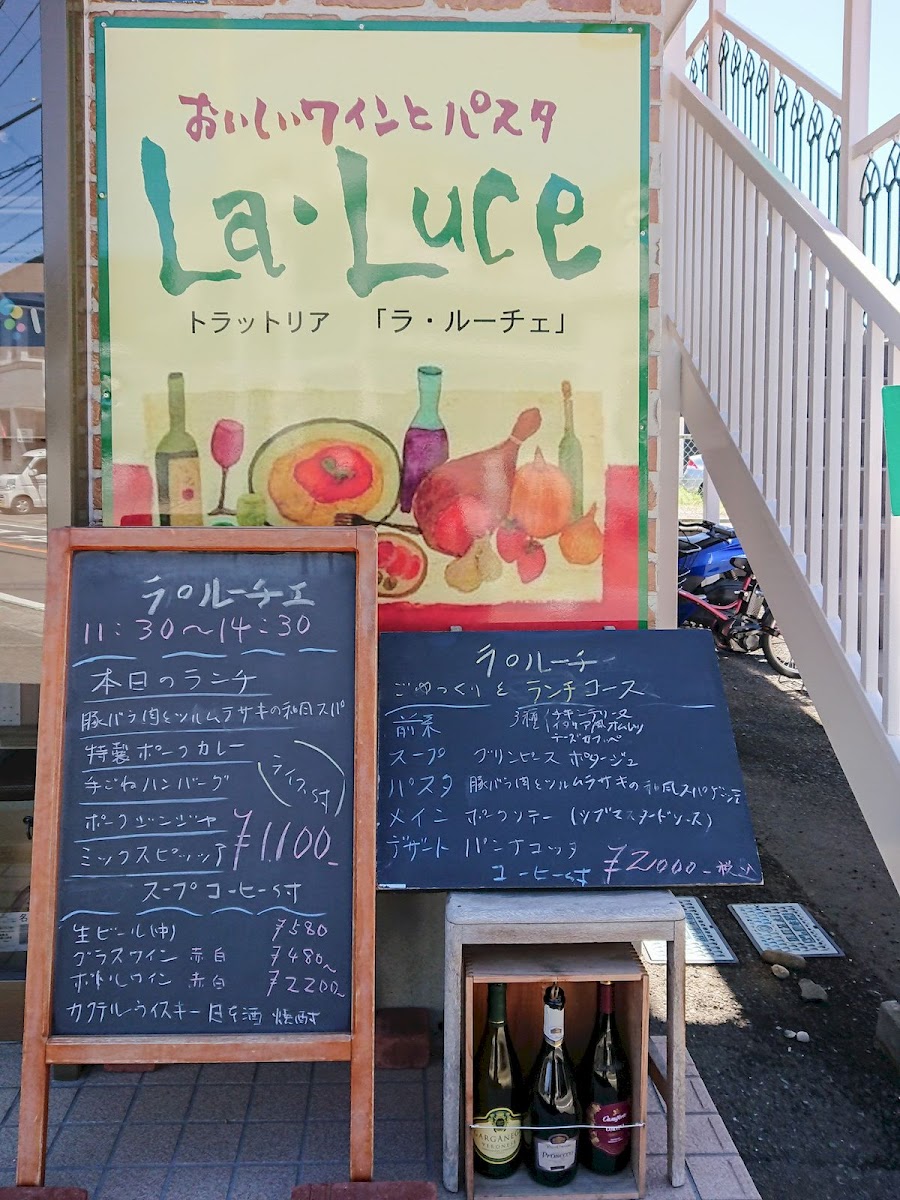 おいしいワインとパスタ
La・Luce
トラットリア 「ラ・ルーチェ」
ラ・ルーチェ
11:30〜14:30
本日のランチ
豚バラ肉とツルムラサキの和風スパ
特製ポークカレー
手ごねハンバーグ
ライス付
ポークジンジャ
ミックスピッツァ
¥1,100-
スープコーヒー付
生ビール(中) ¥580
グラスワイン 赤白 ¥480~
ボトルワイン 赤白 ¥2200~
カクテル・ウイスキー 日本酒 焼酎
ラ・ルーチ
ごゆっくりと ランチコース
前菜 3種
スープ グリンピース ポタージュ
パスタ 豚バラ肉とツルムラサキの和風スパゲッティ
メイン ポークソテー (ツブマスタードソース)
デザート パンナコッタ
コーヒー付 ¥2,000-税込
GARGÀNEGA
PROSECCO